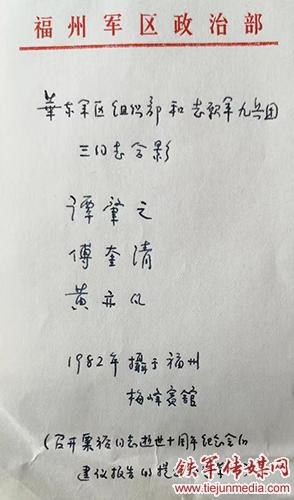 福州军区政治部
華东军区组织部和志愿军九兵团
三同志合影
谭肇之
傅奎清
黄亦凡
1982年攝于福州
梅峰宾舘
(召开粟裕同志逝世十周年纪念会的
建议报告的提
铁军传媒网
www.tiejunmedia.com